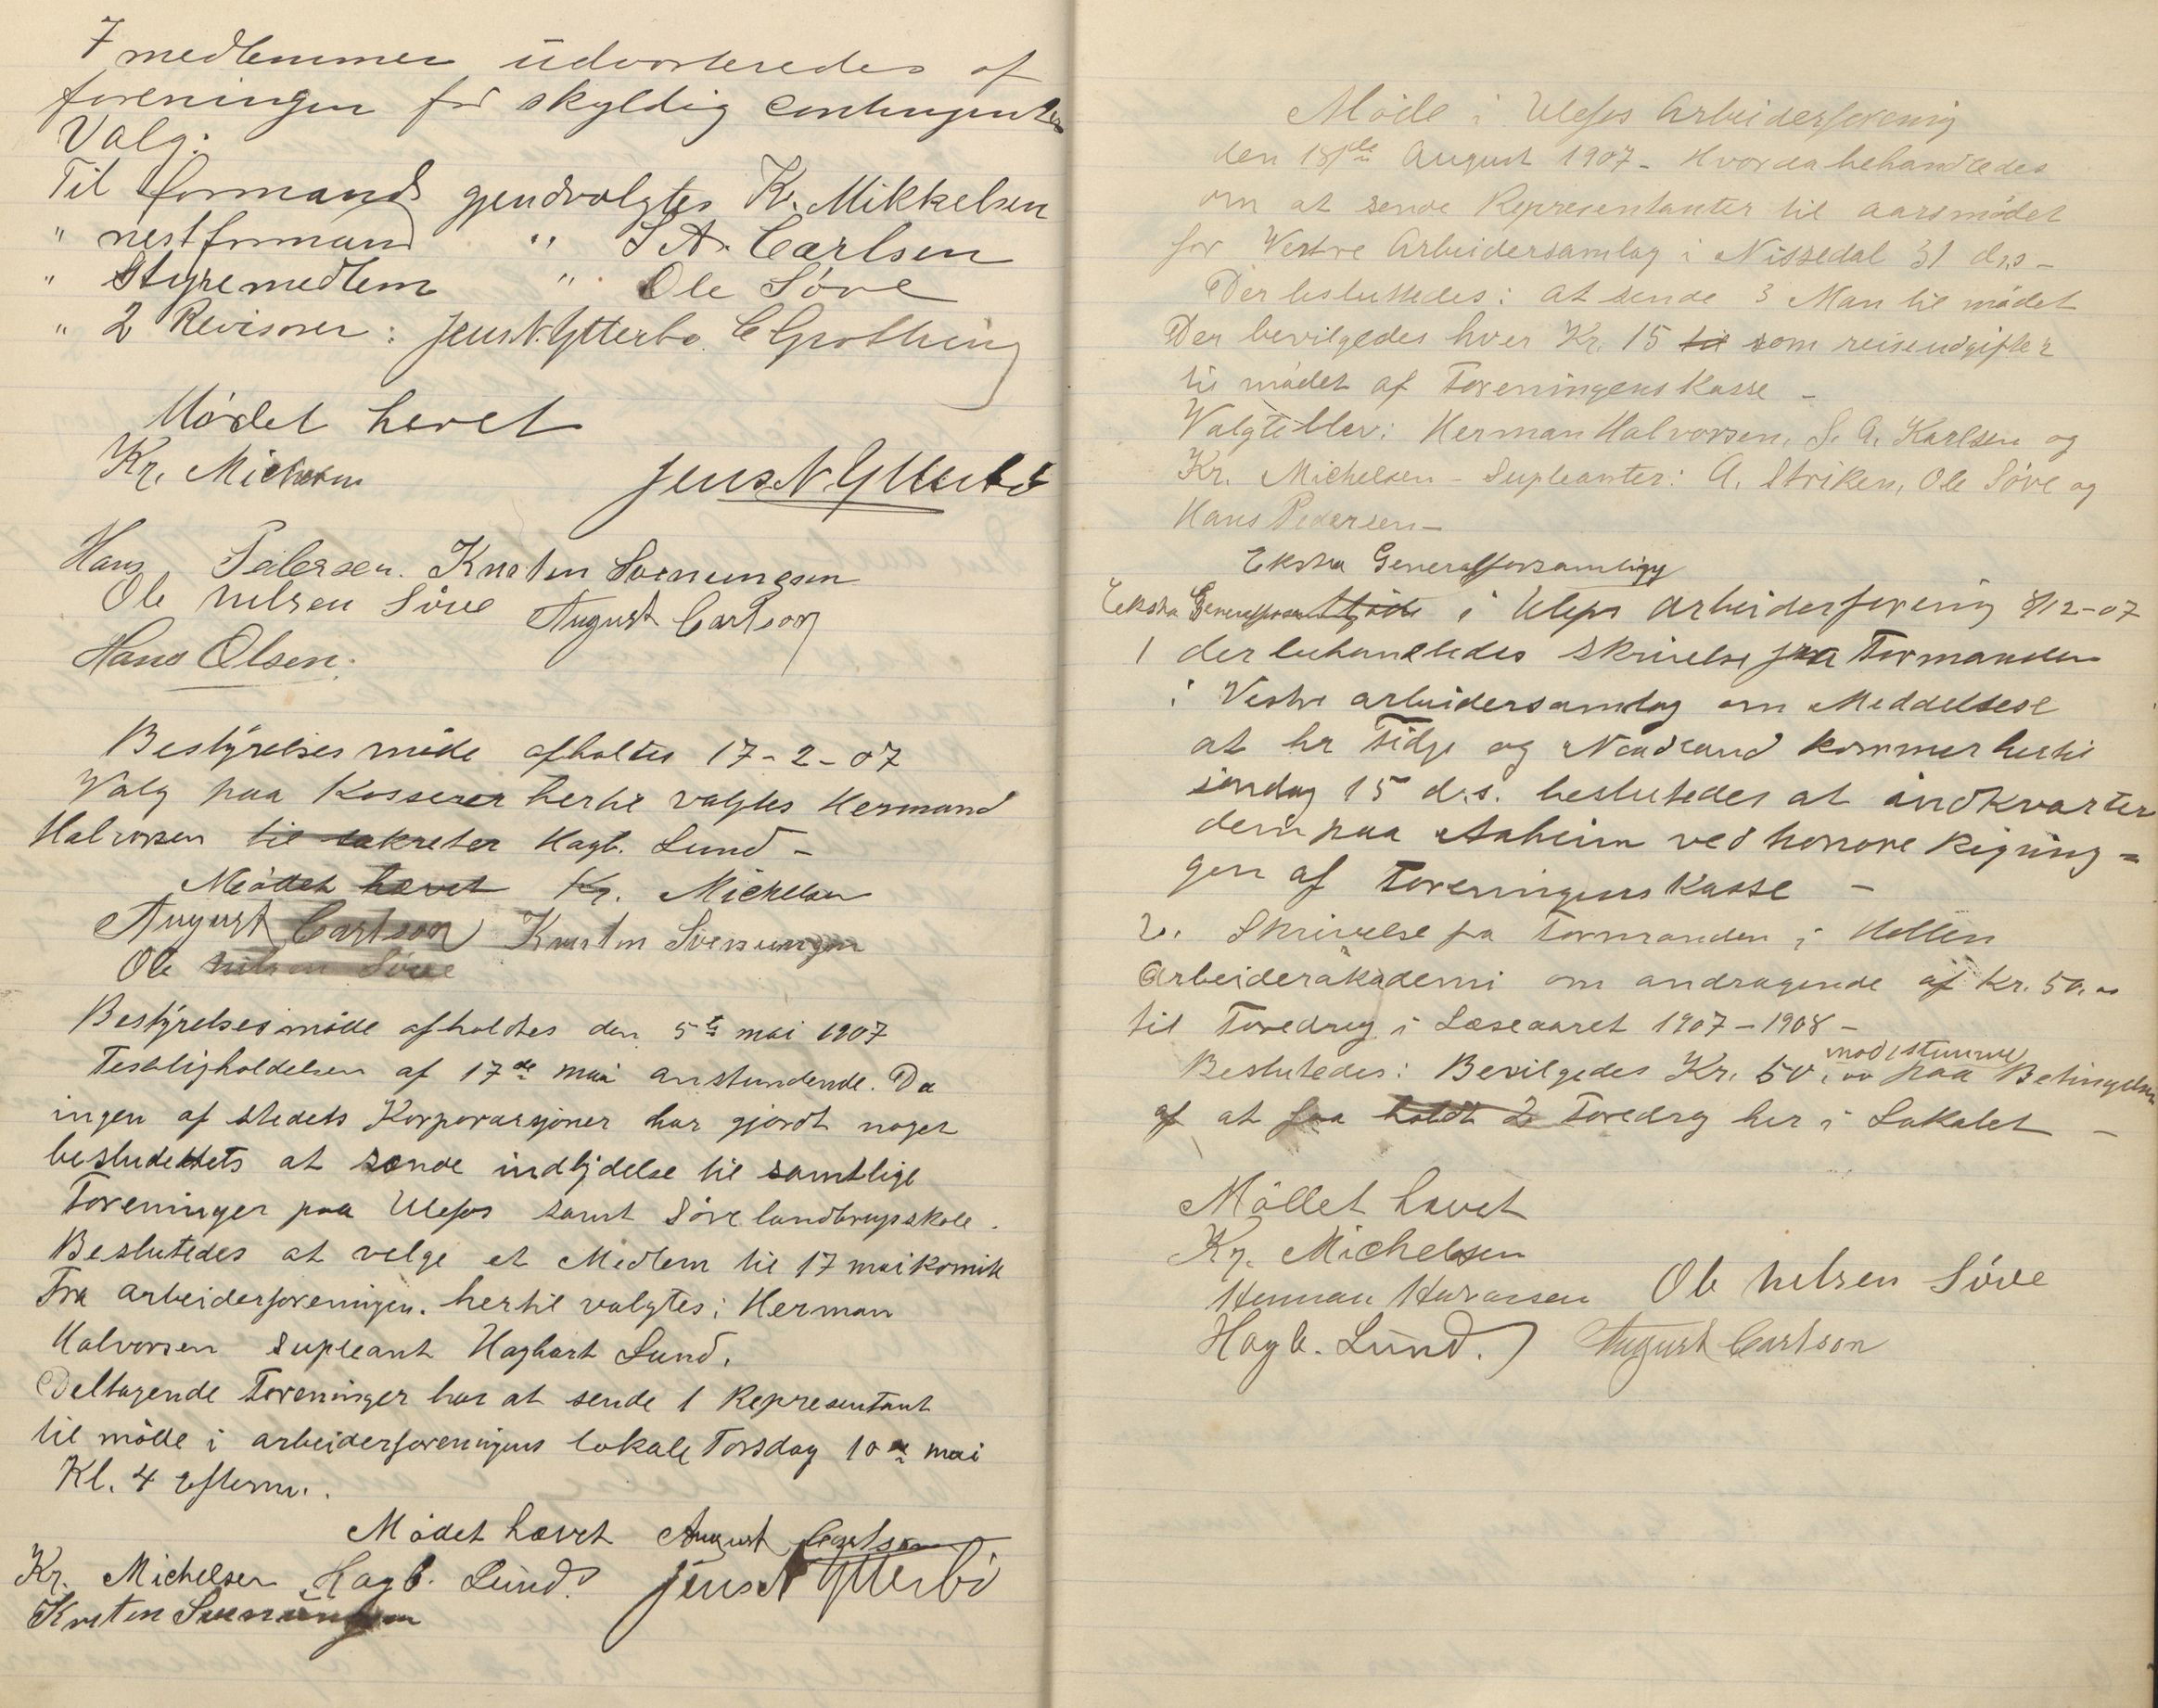 7 medlemmer udvorteredes af
foreningen for skyldig contingenter
Valg:
Til formand gjendvalgtes K. Mikkelsen
" nestformand " S A. Carlsen
" Styremedlem " Ole Söve
" 2 Revisorer : Jens N. Ytterbø. C Grothing
Mödet hevet
Kr. Michelsen Jens N. Ytterbø
Hans Pedersen. Kristen Svenungsen
Ole Nilsen Söve August Carlson
Hans Olsen.
Bestÿrelses möde afholdtes 17-2-07
Valg paa Kasserer hertil valgtes Hermand
Halvorsen til sekreter Hagb. Lund –
Mödet hævet Kr. Michelsen
August Carlson Kristen Svenungsen
Ole Nilsen Söve
Bestÿrelsesmöde afholdtes den 5te mai 1907
Festligholdelsen af 17de mai anstundende. Da
ingen af stedets Korporasjoner har gjordt noget
besludettets at sende indbjdelse til samtlige
Foreninger paa Ulefos samt Söve landbrugsskole.
Beslutedes at velge et Medlem til 17 maikomite
Fra arbeiderforeningen. hertil valgtes: Herman
Halvorsen supleant Hagbart Lund.
Deltagende Foreninger har at sende 1 Representant
til möde i arbeiderforeningens lokale Torsdag 10de mai
Kl. 4 efterm..
Mödet hævet August Carlson
Kr. Michelsen Hagb. Lund. Jens N Ytterbö
Kristen Svenungsen
Möde i Ulefos Arbeiderforening
den 18de August 1907 – Hvorda behandledes
om at sende Representanter til aarsmödet
for Vestre Arbeidersamlag i Nissedal 31 ds –
Der besluttedes: at sende 3 Man til mödet
Der bevilgedes hver Kr. 15 til som reiseudgifter
til mödet af Foreningens Kasse –
Valgte blev: Herman Halvorsen, S. A. Karlsen og
Kr. Michelsen – Supleanter: A. Striken, Ole Söve og
Hans Pedersen –
Ekstra Generalforsamling
Ekstra i Ulefos Arbeiderforening 8/12-07
1 der behandledes skrivelse fra Formanden
i Vestre arbeidersamlag om Meddelsese
at hr Tidje og Nordrand kommer hertil
söndag 15 d.s. beslutedes at indkvarter
dem paa Aaheim ved honore Rigning =
gen af Foreningens Kasse –
2. Skrivelse fra Formanden i Hollen
Arbeiderakademi om andragende af Kr. 50.00
til Foredrag i Læseaaret 1907–1908 –
mod stemme
Beslutedes: Bevilgedes Kr. 50,00 paa Betingelsen
af at faa holdt 2 Foredrag her i Lokalet –
Mödet hævet
Kr. Michelsen
Herman Halvorsen Ole Nilsen Söve
Hagb. Lund. August Carlson